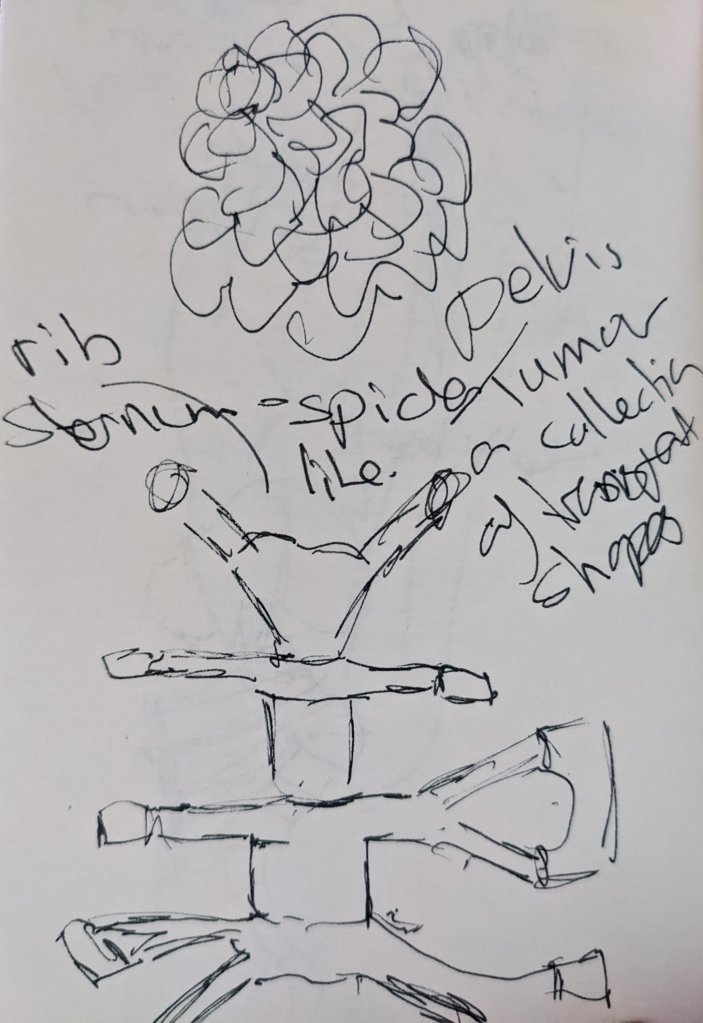 rib
Sternum - spider
like.
Pelvis
Tumor
a collection
of
shapes